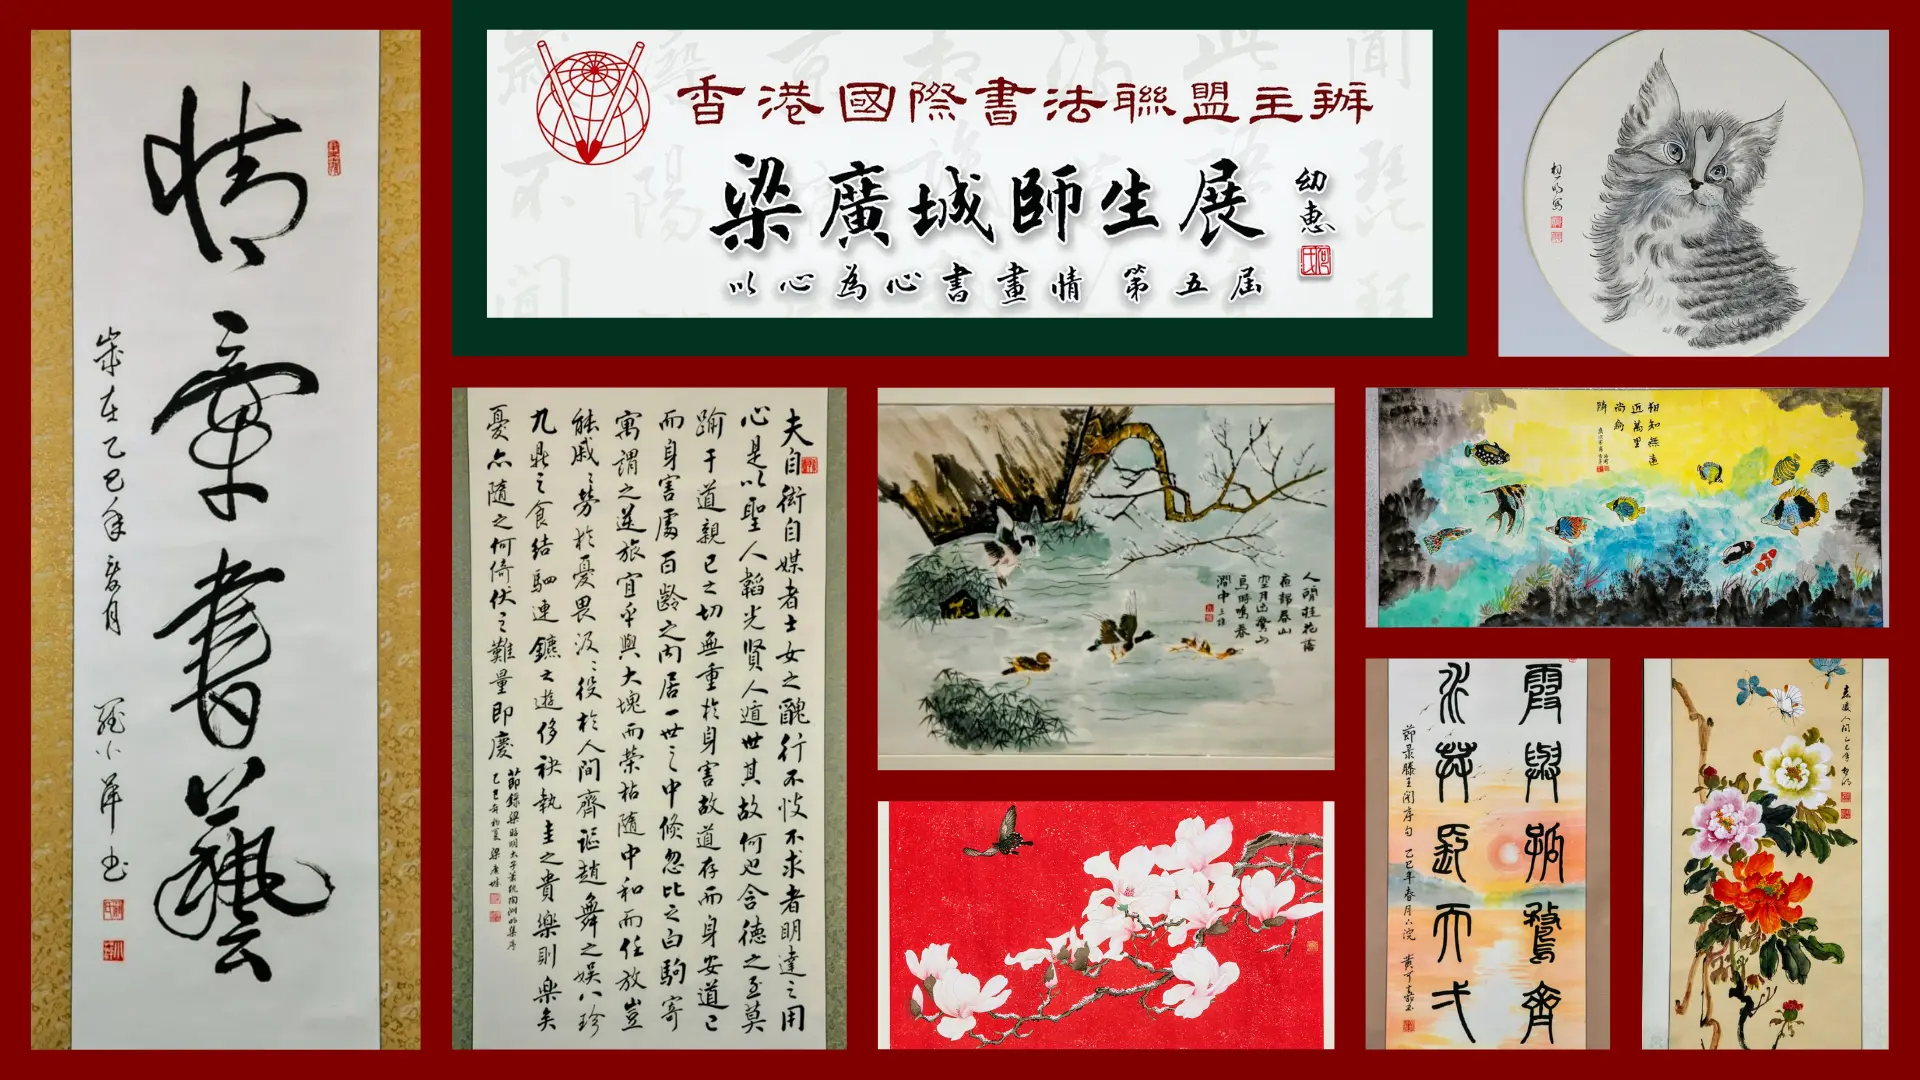 香港國際書法聯盟主辦
梁廣城師生展
幼惠
以心為心書畫情 第五屆
情牽書藝
歲在乙巳年夏月
羅小萍書
夫自衒自媒者士女之醜行不忮不求者明達之用
心是以聖人韜光賢人遁世其故何也含德之至莫
踰于道親己之切無重於身害故道存而身安道亡
而身害處百齡之內居一世之中倏忽比之白駒寄
寓謂之逆旅宜乎與大塊而榮枯隨中和而任放豈
能戚戚勞於憂畏汲汲役於人間齊謳趙舞之娛八珍
九鼎之食結駟連鑣之遊侈袂執圭之貴樂則樂矣
憂亦隨之何倚伏之難量即慶
節錄梁昭明太子蕭統陶淵明集序
乙巳年初夏 梁廣城
人閒桂花落
夜靜春山
空月出驚山
鳥時鳴春
澗中
相知無遠
近萬里
尚為
鄰
霞與孤鶩齊
水共長天弌
節錄滕王閣序句 乙巳年春月
人間